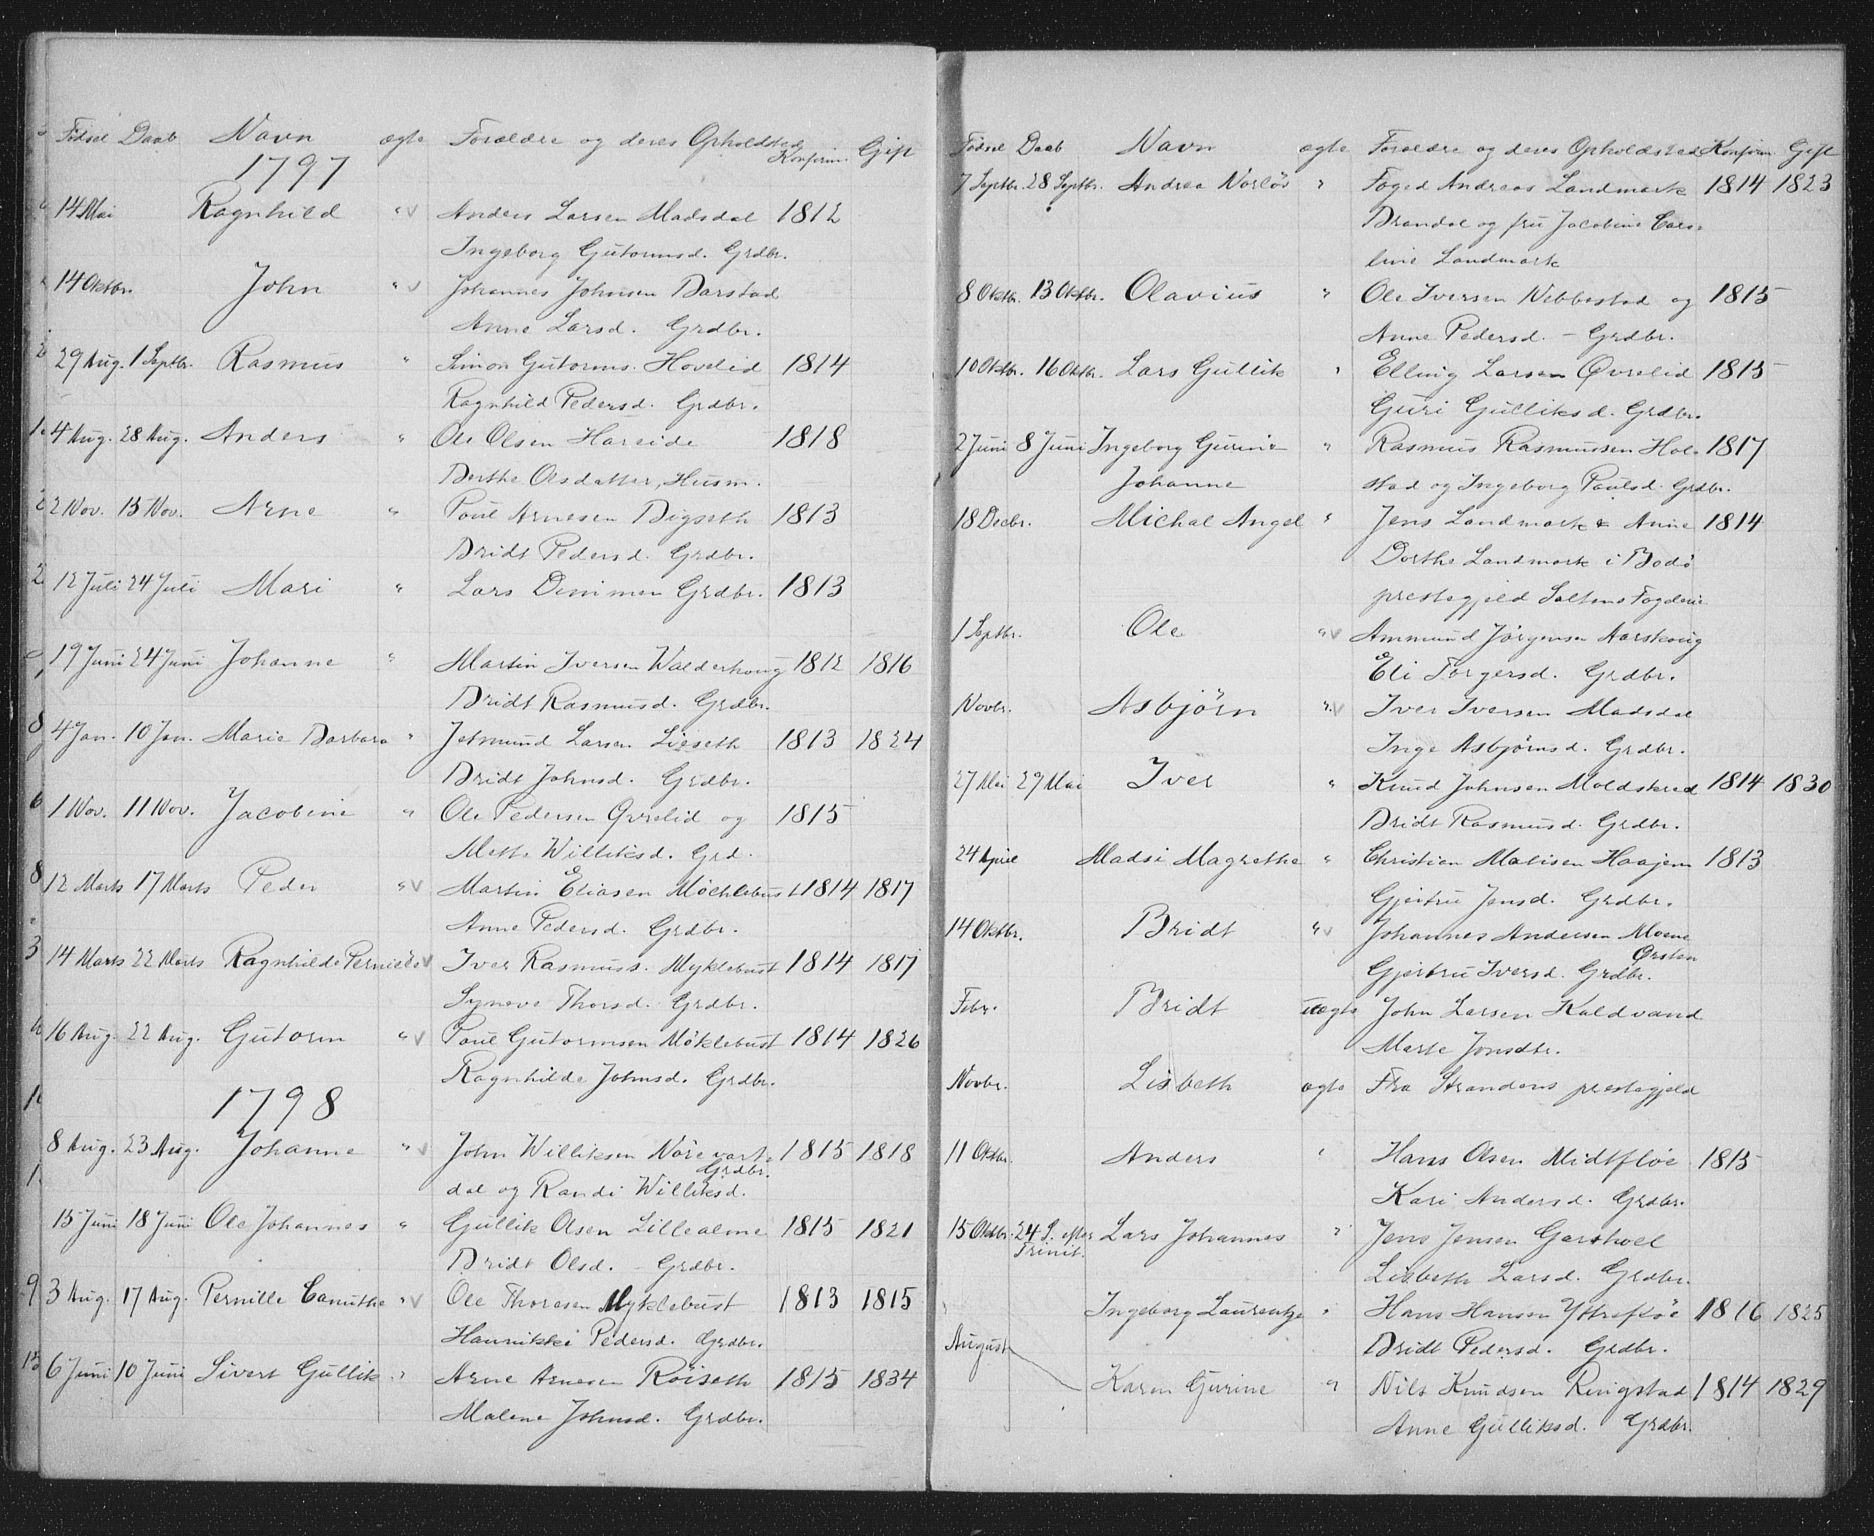 Fødsel Daab Navn ægte Forældre og deres Opholdsted Konfirm. Gift
1797
14 Mai Ragnhild " v Anders Larsen Madsdal 1812
Ingeborg Gutormsd. Grdbr.
14 Oktbr. John " v Johannes Johnsen Barstad
Anne Larsd. Grdbr.
29 Aug. 1 Septbr. Rasmus " Simon Gutorms. Hovelid 1814
Ragnhild Pedersd. Grdbr.
4 Aug. 28 Aug. Anders " Ole Olsen Hareide 1818
Berthe Olsdatter, Husm.
2 Nov. 15 Nov. Arne " Poul Arnesen Bigseth 1813
Bridt Pedersd. Grdbr.
12 Juli 24 Juli Mari " Lars Dimmen Grdbr. 1813
19 Juni 24 Juni Johanne " Martin Iversen Walderhoug 1812 1816
Bridt Rasmusd. Grdbr.
4 Jan. 10 Jan. Marie Barbara " Jetmund Larsen Lieseth 1813 1824
Bridt Johnsd. Grdbr.
1 Nov. 11 Nov. Jacobine " Ole Pedersen Øvrelid og 1815
Mette Williksd. Grd.
12 Marts 17 Marts Peder " v Martin Eliasen Möchlebust 1814 1817
Anne Pedersd. Grdbr.
14 Marts 22 Marts Ragnhilde Pernielle v Iver Rasmuss. Myklebust 1814 1817
Syneve Thorsd. Grdbr.
16 Aug. 22 Aug. Gutorm " v Poul Gutormsen Möklebust 1814 1826
Ragnhilde Johnsd. Grdbr.
1798
8 Aug. 23 Aug. Johanne " v John Williksen Nörevart- 1815 1818
Grdbr.
dal og Randi Williksd.
15 Juni 18 Juni Ole Johannes " Gullik Olsen Lillealme 1815 1821
Bridt Olsd. - Grdbr.
3 Aug. 17 Aug. Pernille Canuthe " v Ole Thoresen Myklebust 1813 1815
Hannikki Pedersd. Grdbr.
6 Juni 10 Juni Sivert Gullik " Arne Arnesen Röiseth 1815 1834
Malene Johnsd. Grdbr.
Fødsel Daab Navn ægte Forældre og deres Opholdsted Konfirm Gift
7 Septbr. 28 Septbr. Andrea Norløv " Foged Andreas Landmark 1814 1823
Brandal og fru Jacobine Caro-
line Landmark
8 Oktbr. 13 Oktbr. Olavius " Ole Iversen Nebbestad og 1815
Anne Pedersd. - Grdbr.
10 Oktbr. 16 Oktbr. Lars Gullik " Elling Larsen Øvrelid 1815
Guri Gulliksd. Grdbr.
2 Juni 8 Juni Ingeborg Gurine " Rasmus Rasmussen Hol- 1817
Johanne stad og Ingeborg Paulsd. Grdbr.
18 Decbr. Michal Angel " Jens Landmark & Anne 1814
Dorthe Landmark i Bodö
prestegjeld Saltens Fogderie
1 Septbr. Ole " v Ammund Jørgensen Aarskoug
Eli Torgersd. Grdbr.
Novbr. Asbjørn " v Iver Iversen Madsdal
Inge Asbjørnsd. Grdbr.
27 Mai 29 Mai Iver " Knud Johnsen Moldskred 1814 1830
Bridt Rasmusd. Grdbr.
24 April Madsi Magrethe " Christien Matisen Haajem 1813
Gjertru Jensd. Grdbr.
14 Oktbr. Bridt " v Johannes Andersen Moene
Ørsten
Gjertru Iversd. Grdbr.
Febr. Bridt uægte John Larsen Kaldvand
Marte Jonsdtr.
Novbr. Lisbeth ægte Fra Strandens prestegjeld
11 Oktbr. Anders " Hans Olsen Midtflöe 1815
Kari Andersd. Grdbr.
15 Oktbr. 24 S. efter Lars Johannes " Jens Jensen Garshoel
Trinit. Lisbeth Larsd. Grdbr.
Ingeborg Laurentze " Hans Hansen Ytreflöe 1816 1825
August Bridt Pedersd. Grdbr.
Karen Gurine " Nils Knudsen Ringstad 1814 1829
Anne Gulliksd. Grdbr.